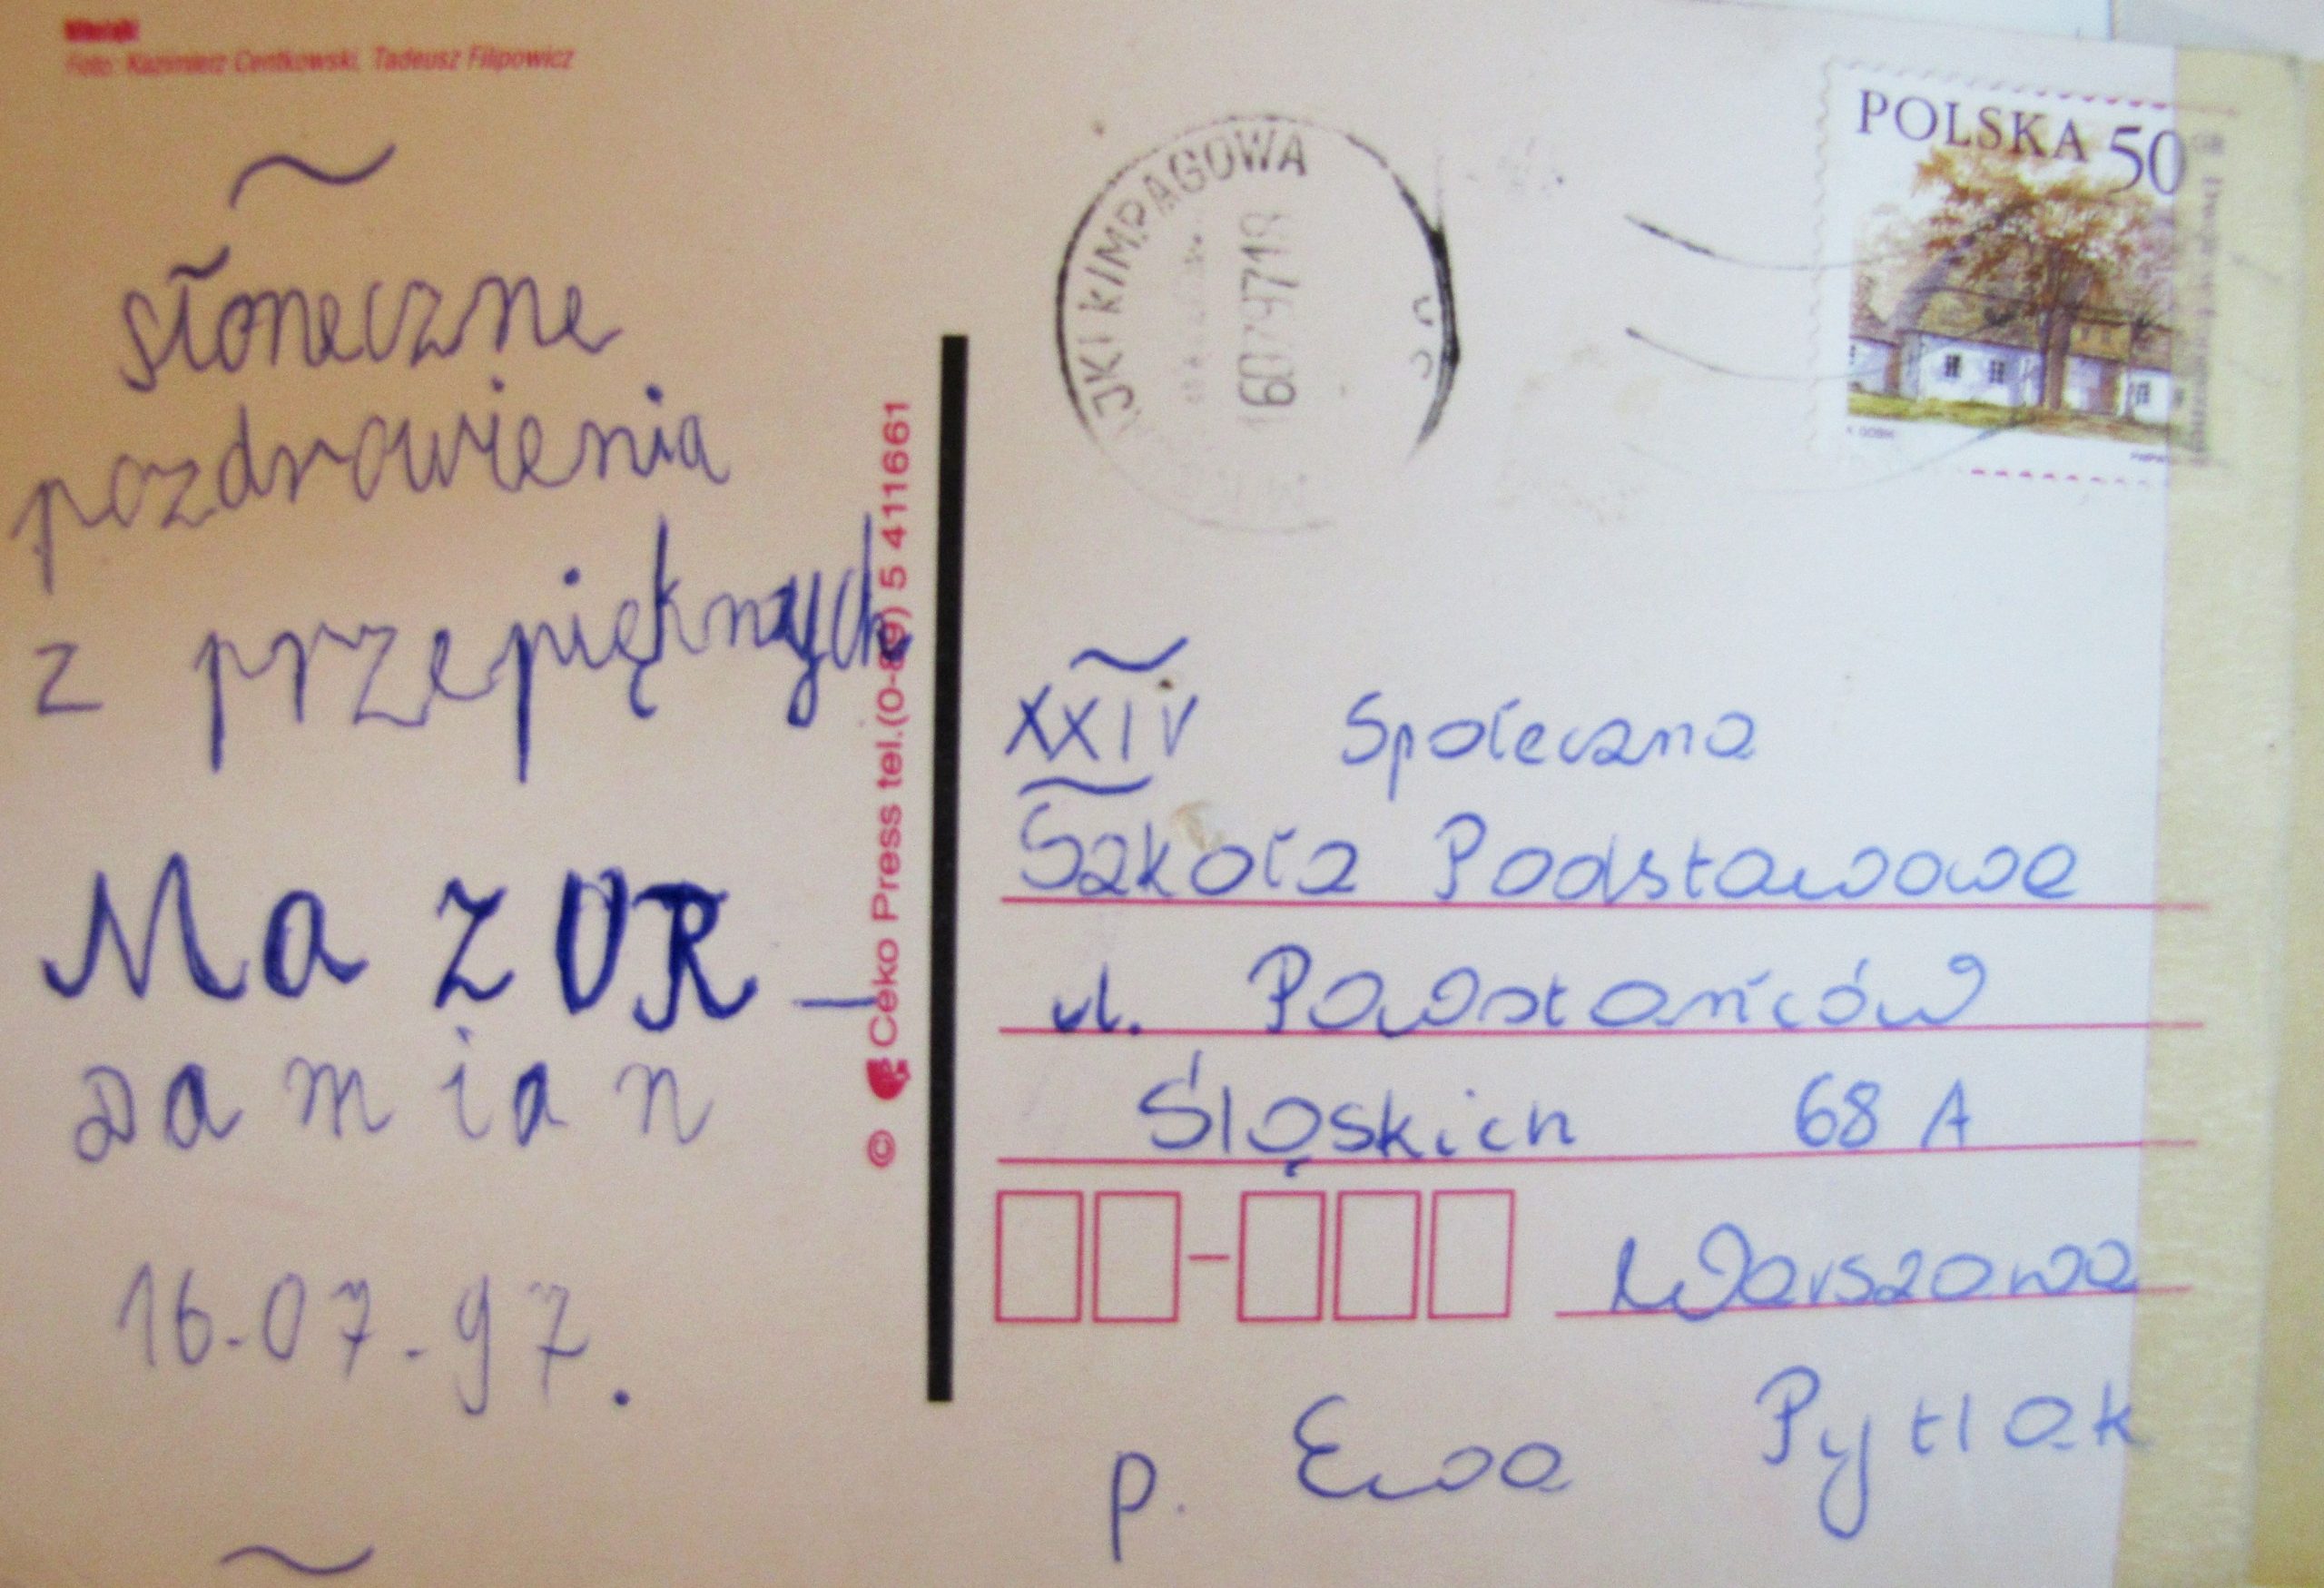 Mikołajki
Foto: Kazimierz Centkowski, Tadeusz Filipowicz
słoneczne
pozdrowienia
z przepięknych
MaZUR _
Damian
16.07.97.
© Ceko Press tel.(0-89) 5 411661
KIMPAGOWA
POLSKA 50
XXIV Społeczna
Szkoła Podstawowa
ul. Powstańców
Śląskich 68 A
Warszawa
p. Ewa Pytlak